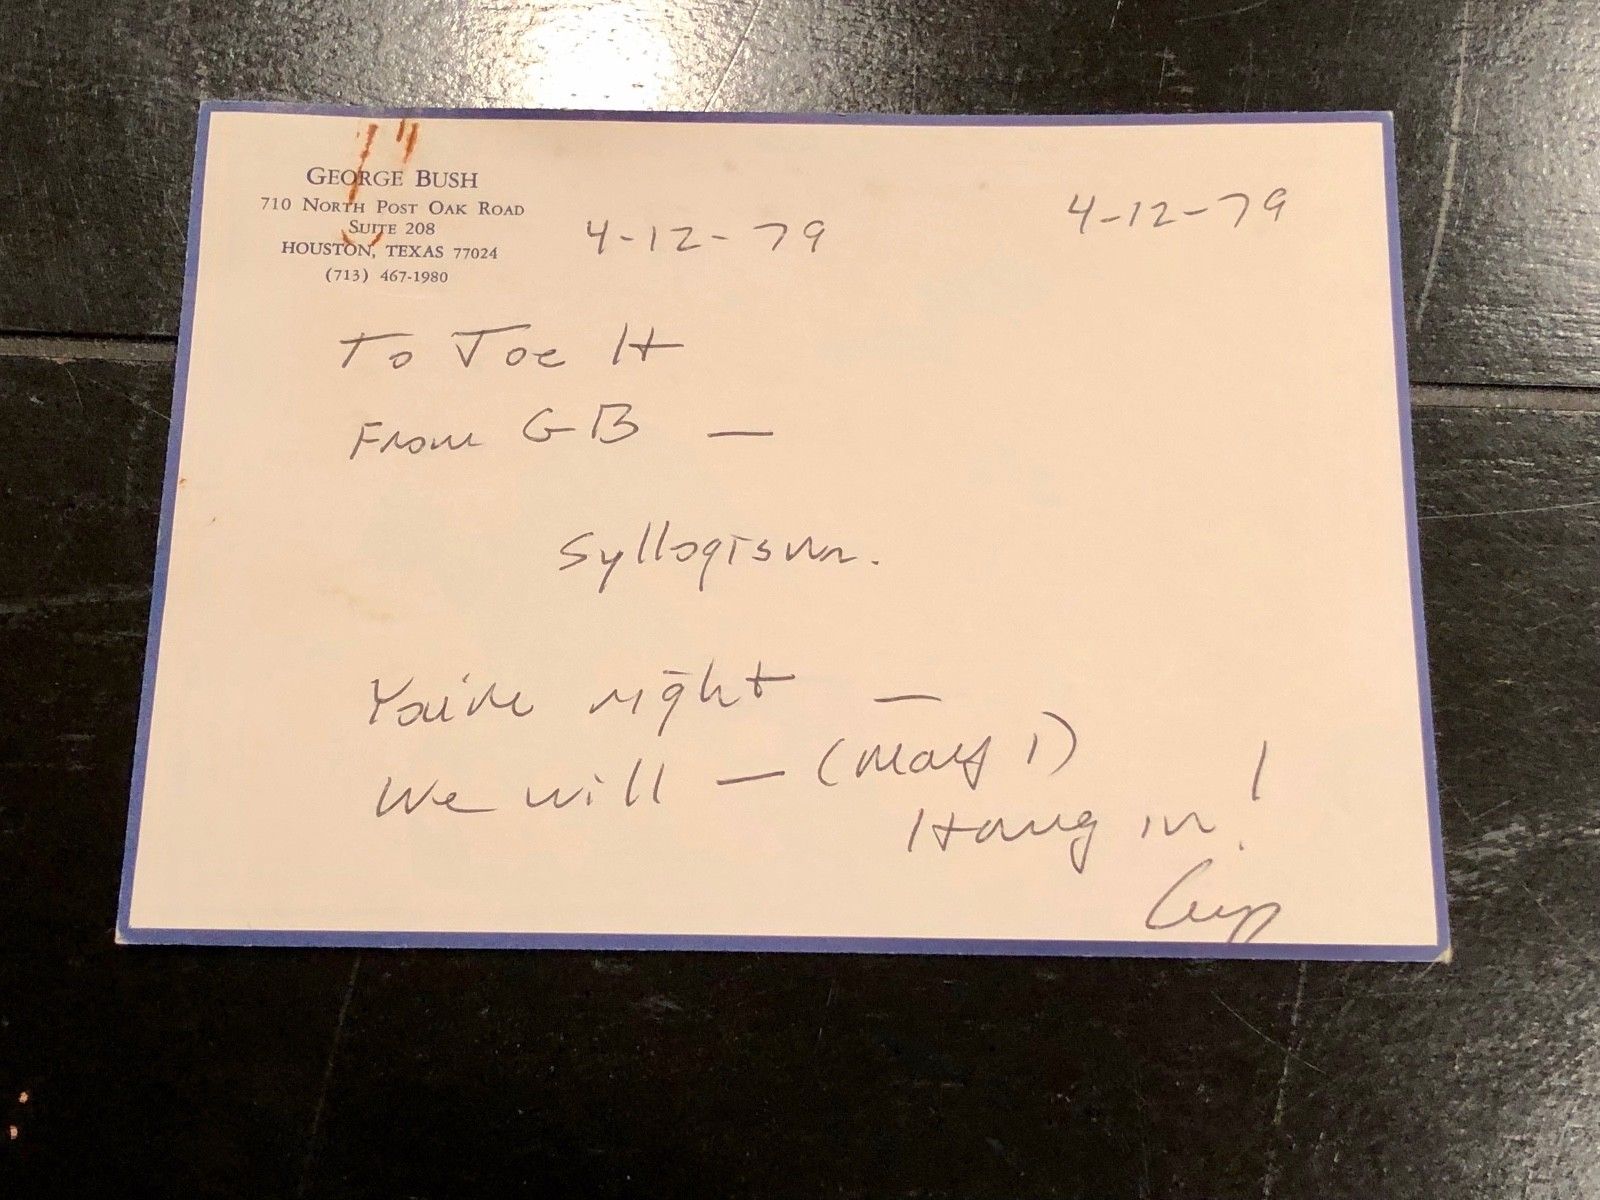 GEORGE BUSH
710 NORTH POST OAK ROAD
SUITE 208
HOUSTON, TEXAS 77024
(713) 467-1980
4-12-79
4-12-79
To Joe H
From GB —
Syllogism.
You're right —
We will — (May 1)
Hang in!